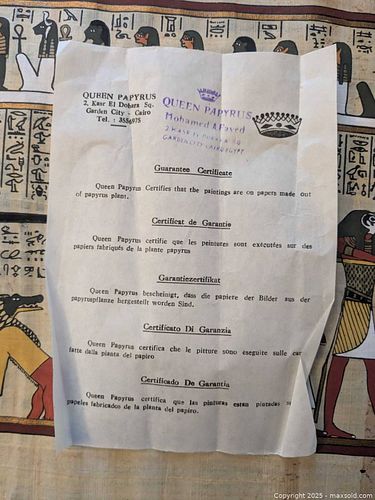 QUEEN PAPYRUS
2, Kasr El Dobara Sq.
Garden City - Cairo
Tel. : 3556975
QUEEN PAPYRUS
Mohamed A Fayed
GARDEN CITY CAIRO EGYPT
Guarantee Certificate
Queen Papyrus Certifies that the paintings are on papers made out
of papyrus plant.
Certificat de Garantie
Queen Papyrus certifie que les peintures sont exécutées sur des
papiers fabriqués de la plante papyrus
Garantiezertifikat
Queen Papyrus bescheinigt, dass die papiere der Bilder aus der
papyruspflanze hergestellt worden Sind.
Certificato Di Garanzia
Queen Papyrus certifica che le pitture sono eseguite sulle car
fatte dalla pianta del papiro
Certificado De Garantia
Queen Papyrus certifica que las pinturas estan pintadas
papeles fabricados de la planta del papiro.
Copyright © 2025 - maxsold.com